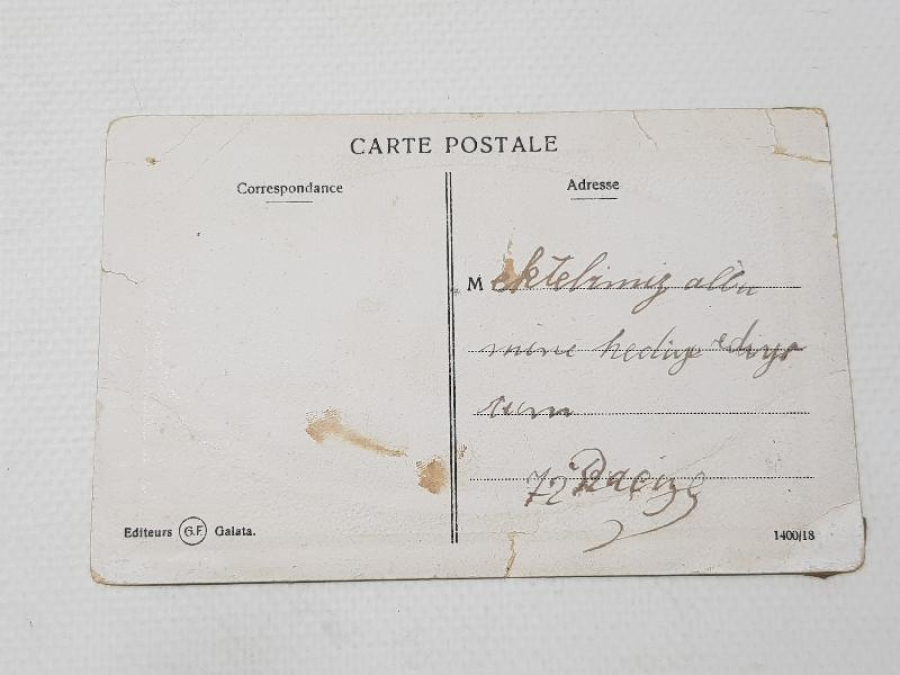 CARTE POSTALE
Correspondance
Adresse
Mektebimiz albü
müne hediye ediyo
rum
72
Editeurs G.F. Galata.
1400/18